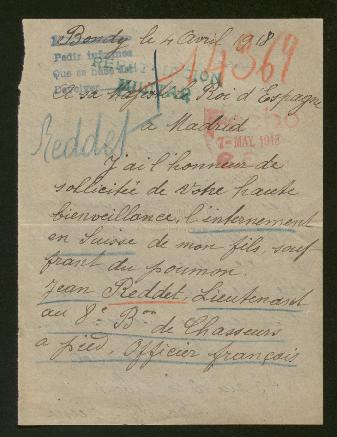 Bondy le 4 Avril 1918
Pedir informes
Que se hace
Devolver
14369
A sa Majesté, Roi d'Espagne
à Madrid
7-MAY.1918
Reddet
J'ai l'honneur de
sollicitée de votre haute
bienveillance, l'internement
en Suisse de mon fils, souf
frant du poumon.
Jean Reddet, Lieutenant
au 8e Bon de Chasseurs
a pied, Officier français